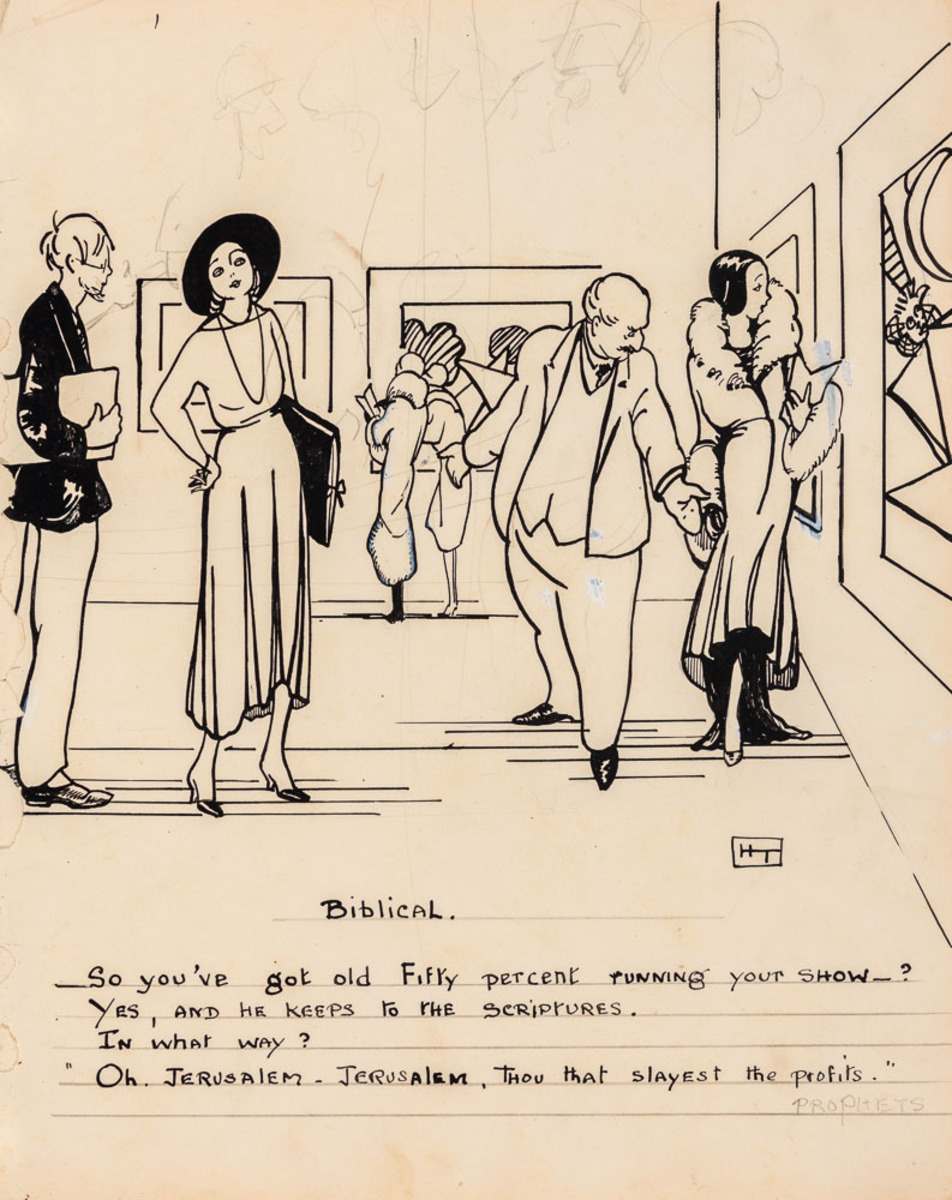 HT
Biblical.
So you've got old Fifty percent running your show—?
Yes, and he keeps to the scriptures.
In what way?
"Oh. Jerusalem - Jerusalem, thou that slayest the profits."
PROPHETS